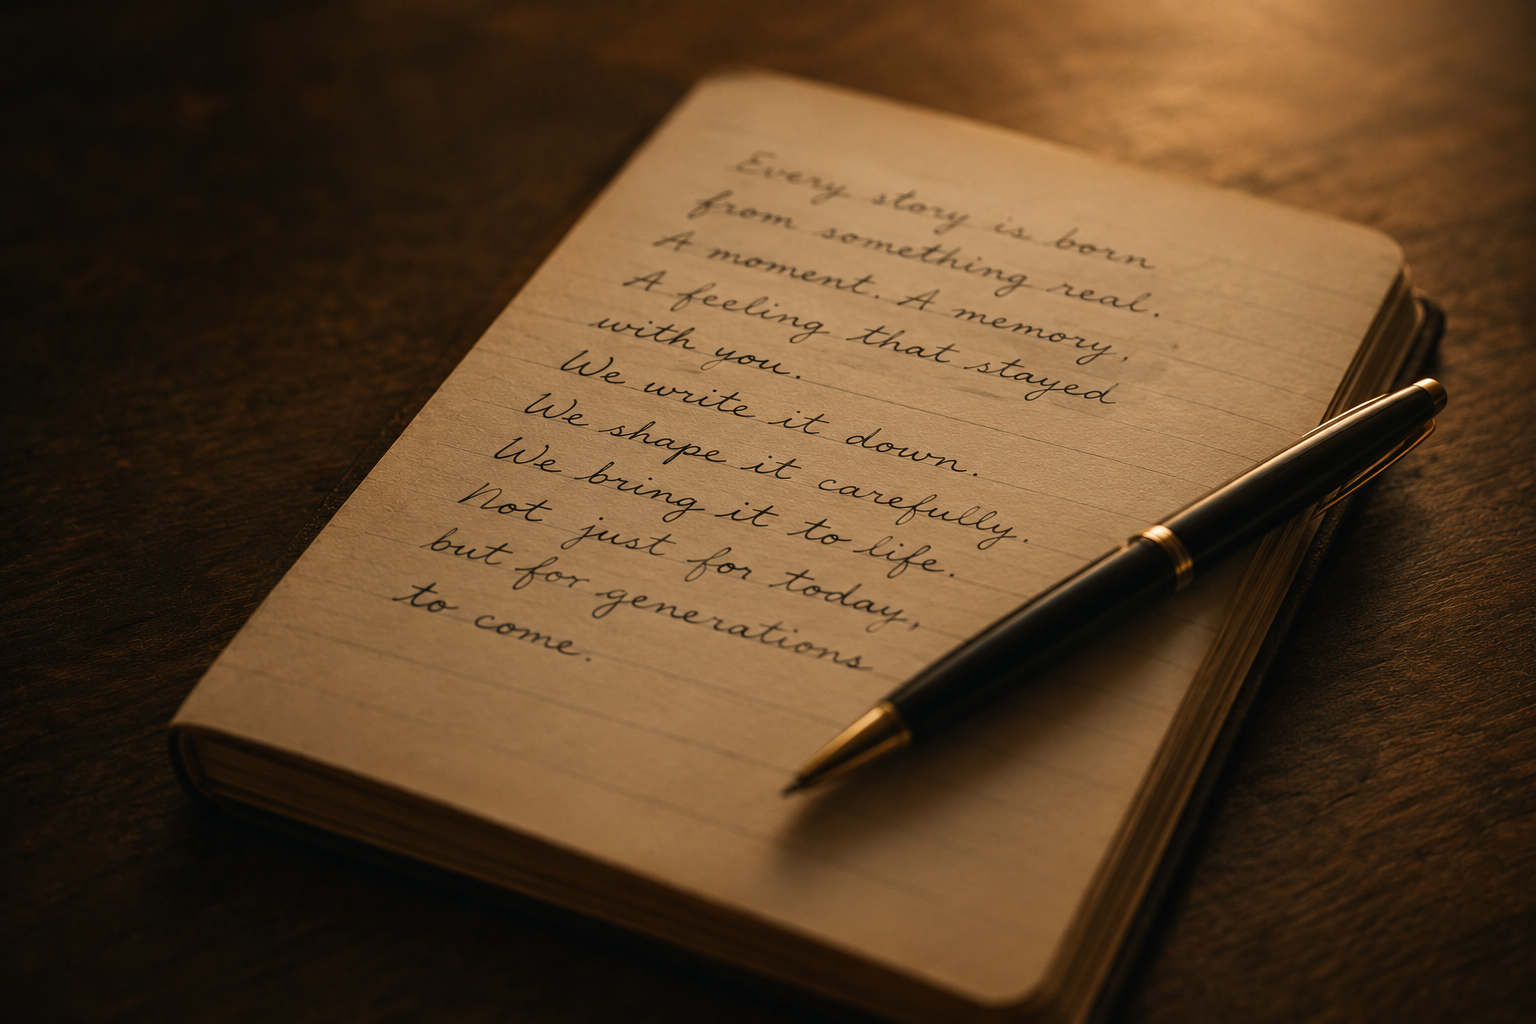 Every story is born
from something real.
A moment. A memory,
A feeling that stayed
with you.
We write it down.
We shape it carefully.
We bring it to life.
Not just for today,
but for generations
to come.